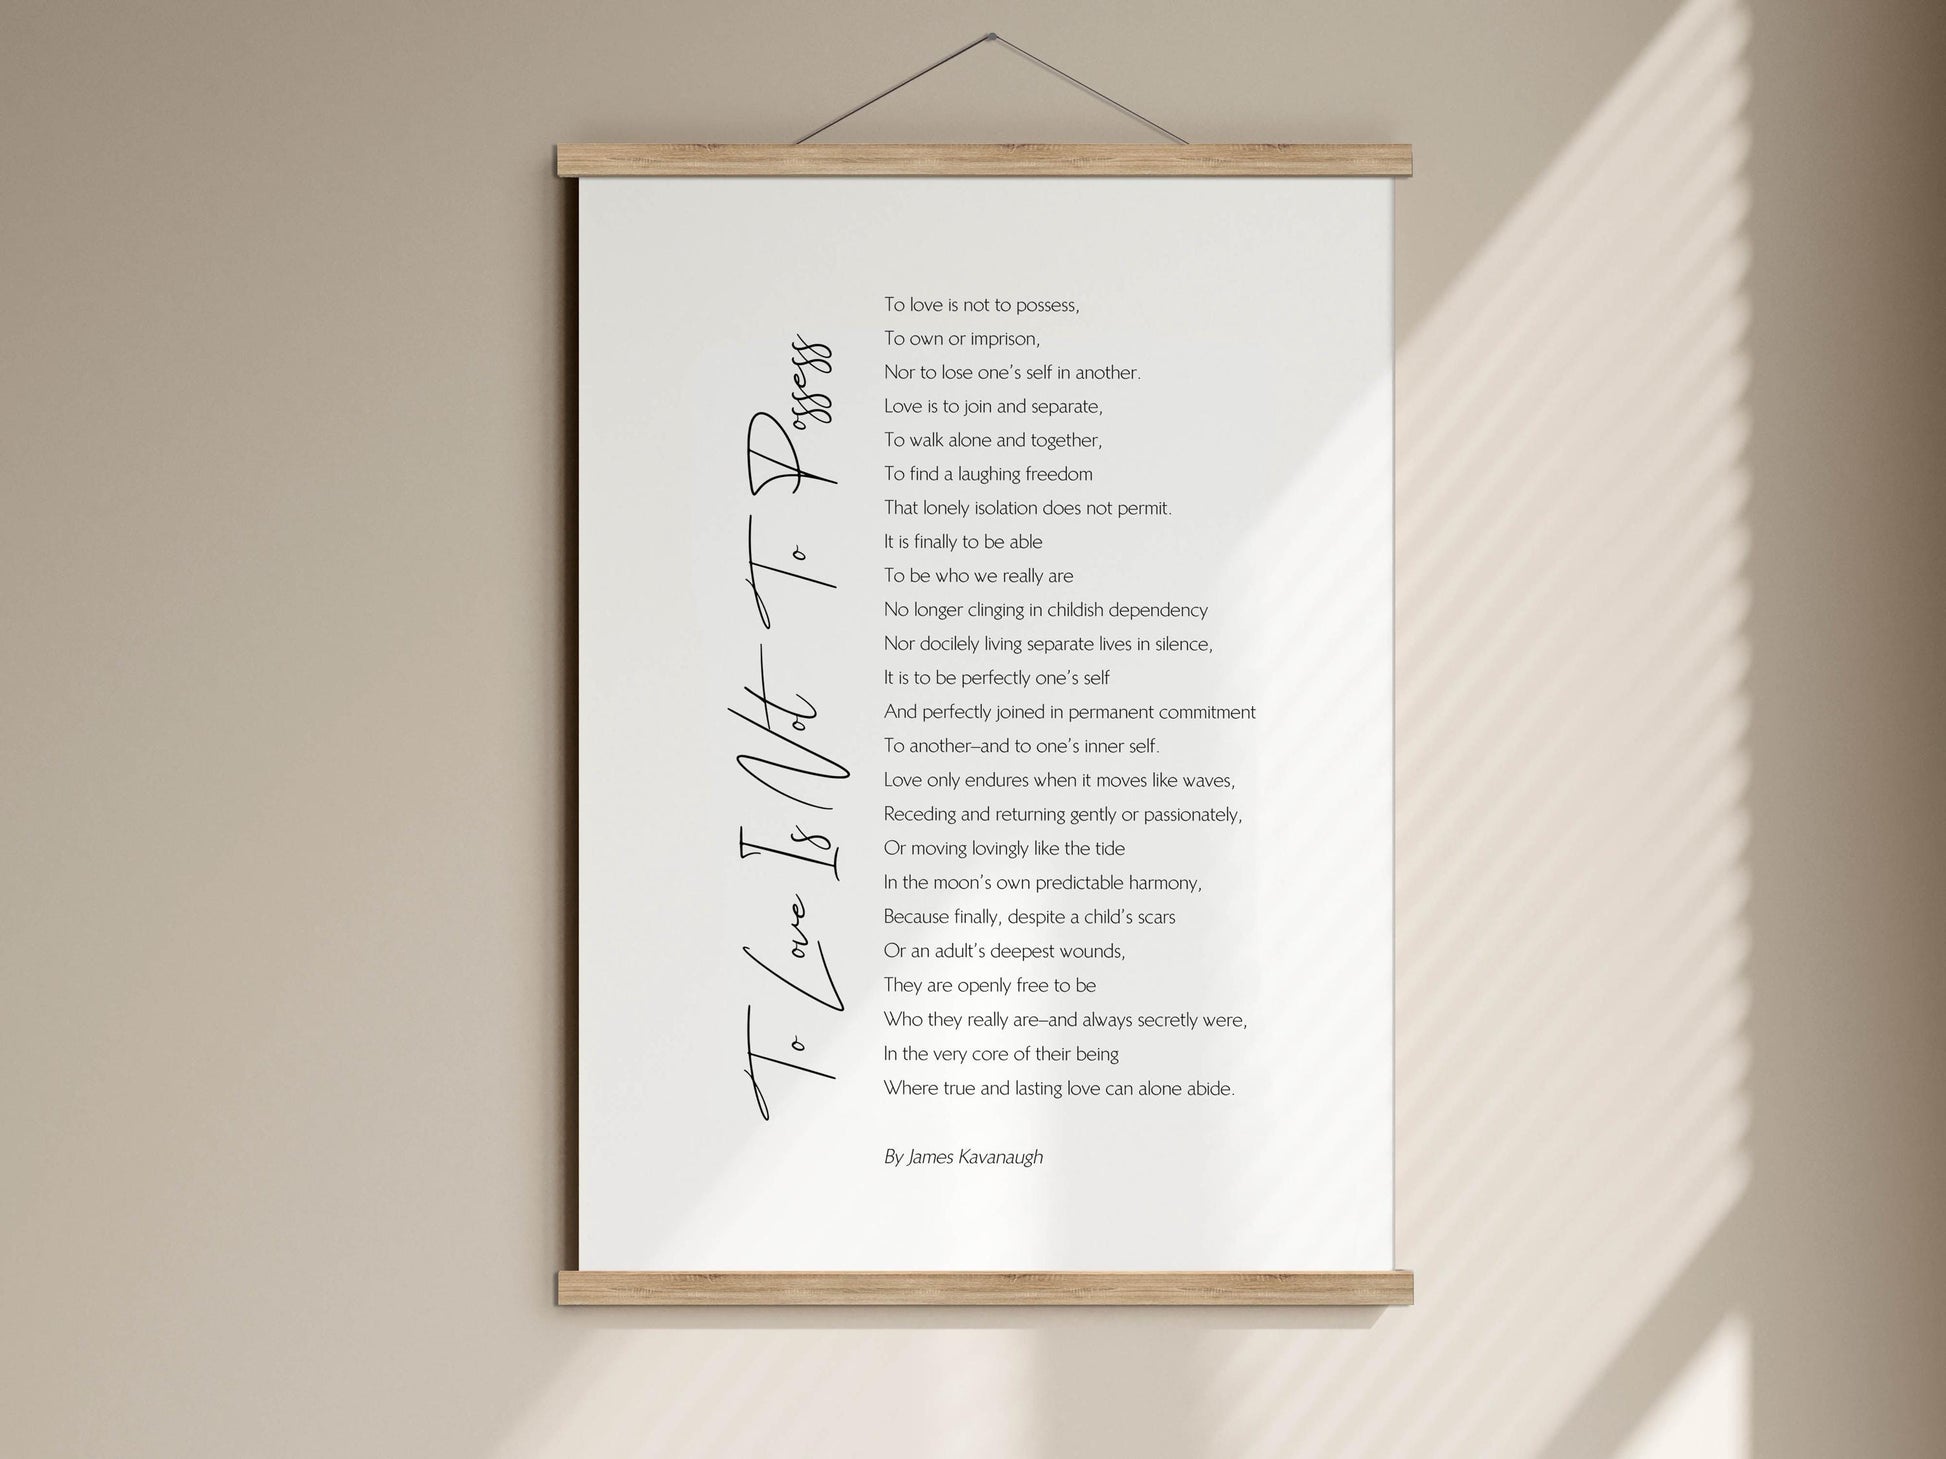 To Love Is Not To Possess
To love is not to possess,
To own or imprison,
Nor to lose one's self in another.
Love is to join and separate,
To walk alone and together,
To find a laughing freedom
That lonely isolation does not permit.
It is finally to be able
To be who we really are
No longer clinging in childish dependency
Nor docilely living separate lives in silence,
It is to be perfectly one's self
And perfectly joined in permanent commitment
To another–and to one's inner self.
Love only endures when it moves like waves,
Receding and returning gently or passionately,
Or moving lovingly like the tide
In the moon's own predictable harmony,
Because finally, despite a child's scars
Or an adult's deepest wounds,
They are openly free to be
Who they really are–and always secretly were,
In the very core of their being
Where true and lasting love can alone abide.
By James Kavanaugh